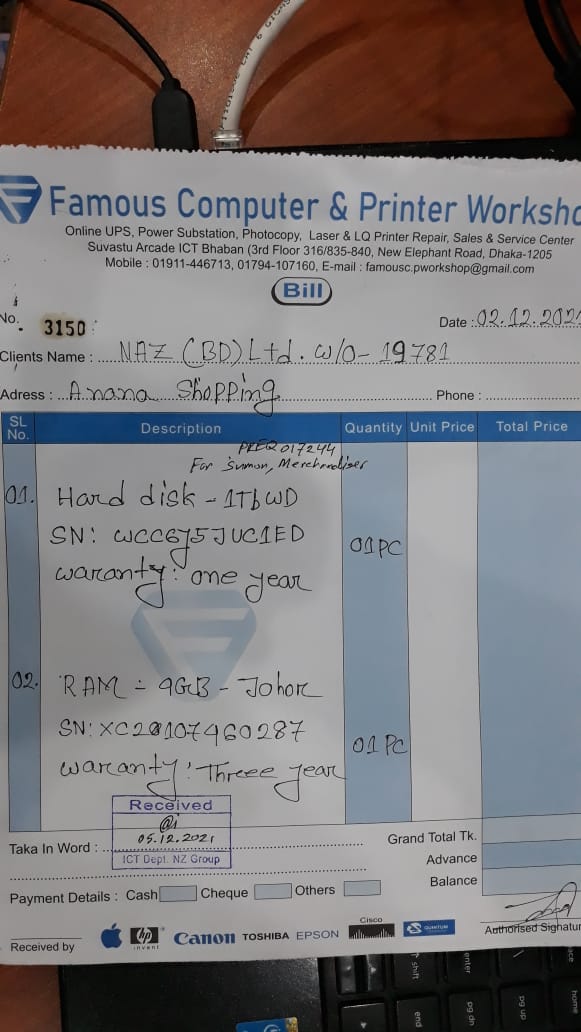 Famous Computer & Printer Worksho
Online UPS, Power Substation, Photocopy, Laser & LQ Printer Repair, Sales & Service Center
Suvastu Arcade ICT Bhaban (3rd Floor 316/835-840, New Elephant Road, Dhaka-1205
Mobile : 01911-446713, 01794-107160, E-mail : famousc.pworkshop@gmail.com
Bill
No. 3150
Date : 02.12.2021
Clients Name : NAZ (BD) Ltd. W/O- 19781
Adress : Anana Shopping Phone :
SL No. Description Quantity Unit Price Total Price
PREQ017244
For Sumon, Merchandiser
01. Hard disk - 1Tb WD
SN: WCC6Y5JUC1ED 01 PC
waranty: one year
02. RAM - 4GB - Johor
SN: XC20107460287 01 PC
waranty: Threee year
Received
05.12.2021
ICT Dept. NZ Group
Taka In Word :
Grand Total Tk.
Advance
Balance
Payment Details : Cash Cheque Others
Received by
hp
invent
Canon TOSHIBA EPSON
Cisco
QUANTUM
Authorised Signatur
shift
enter
end
pg dn
pg up
home